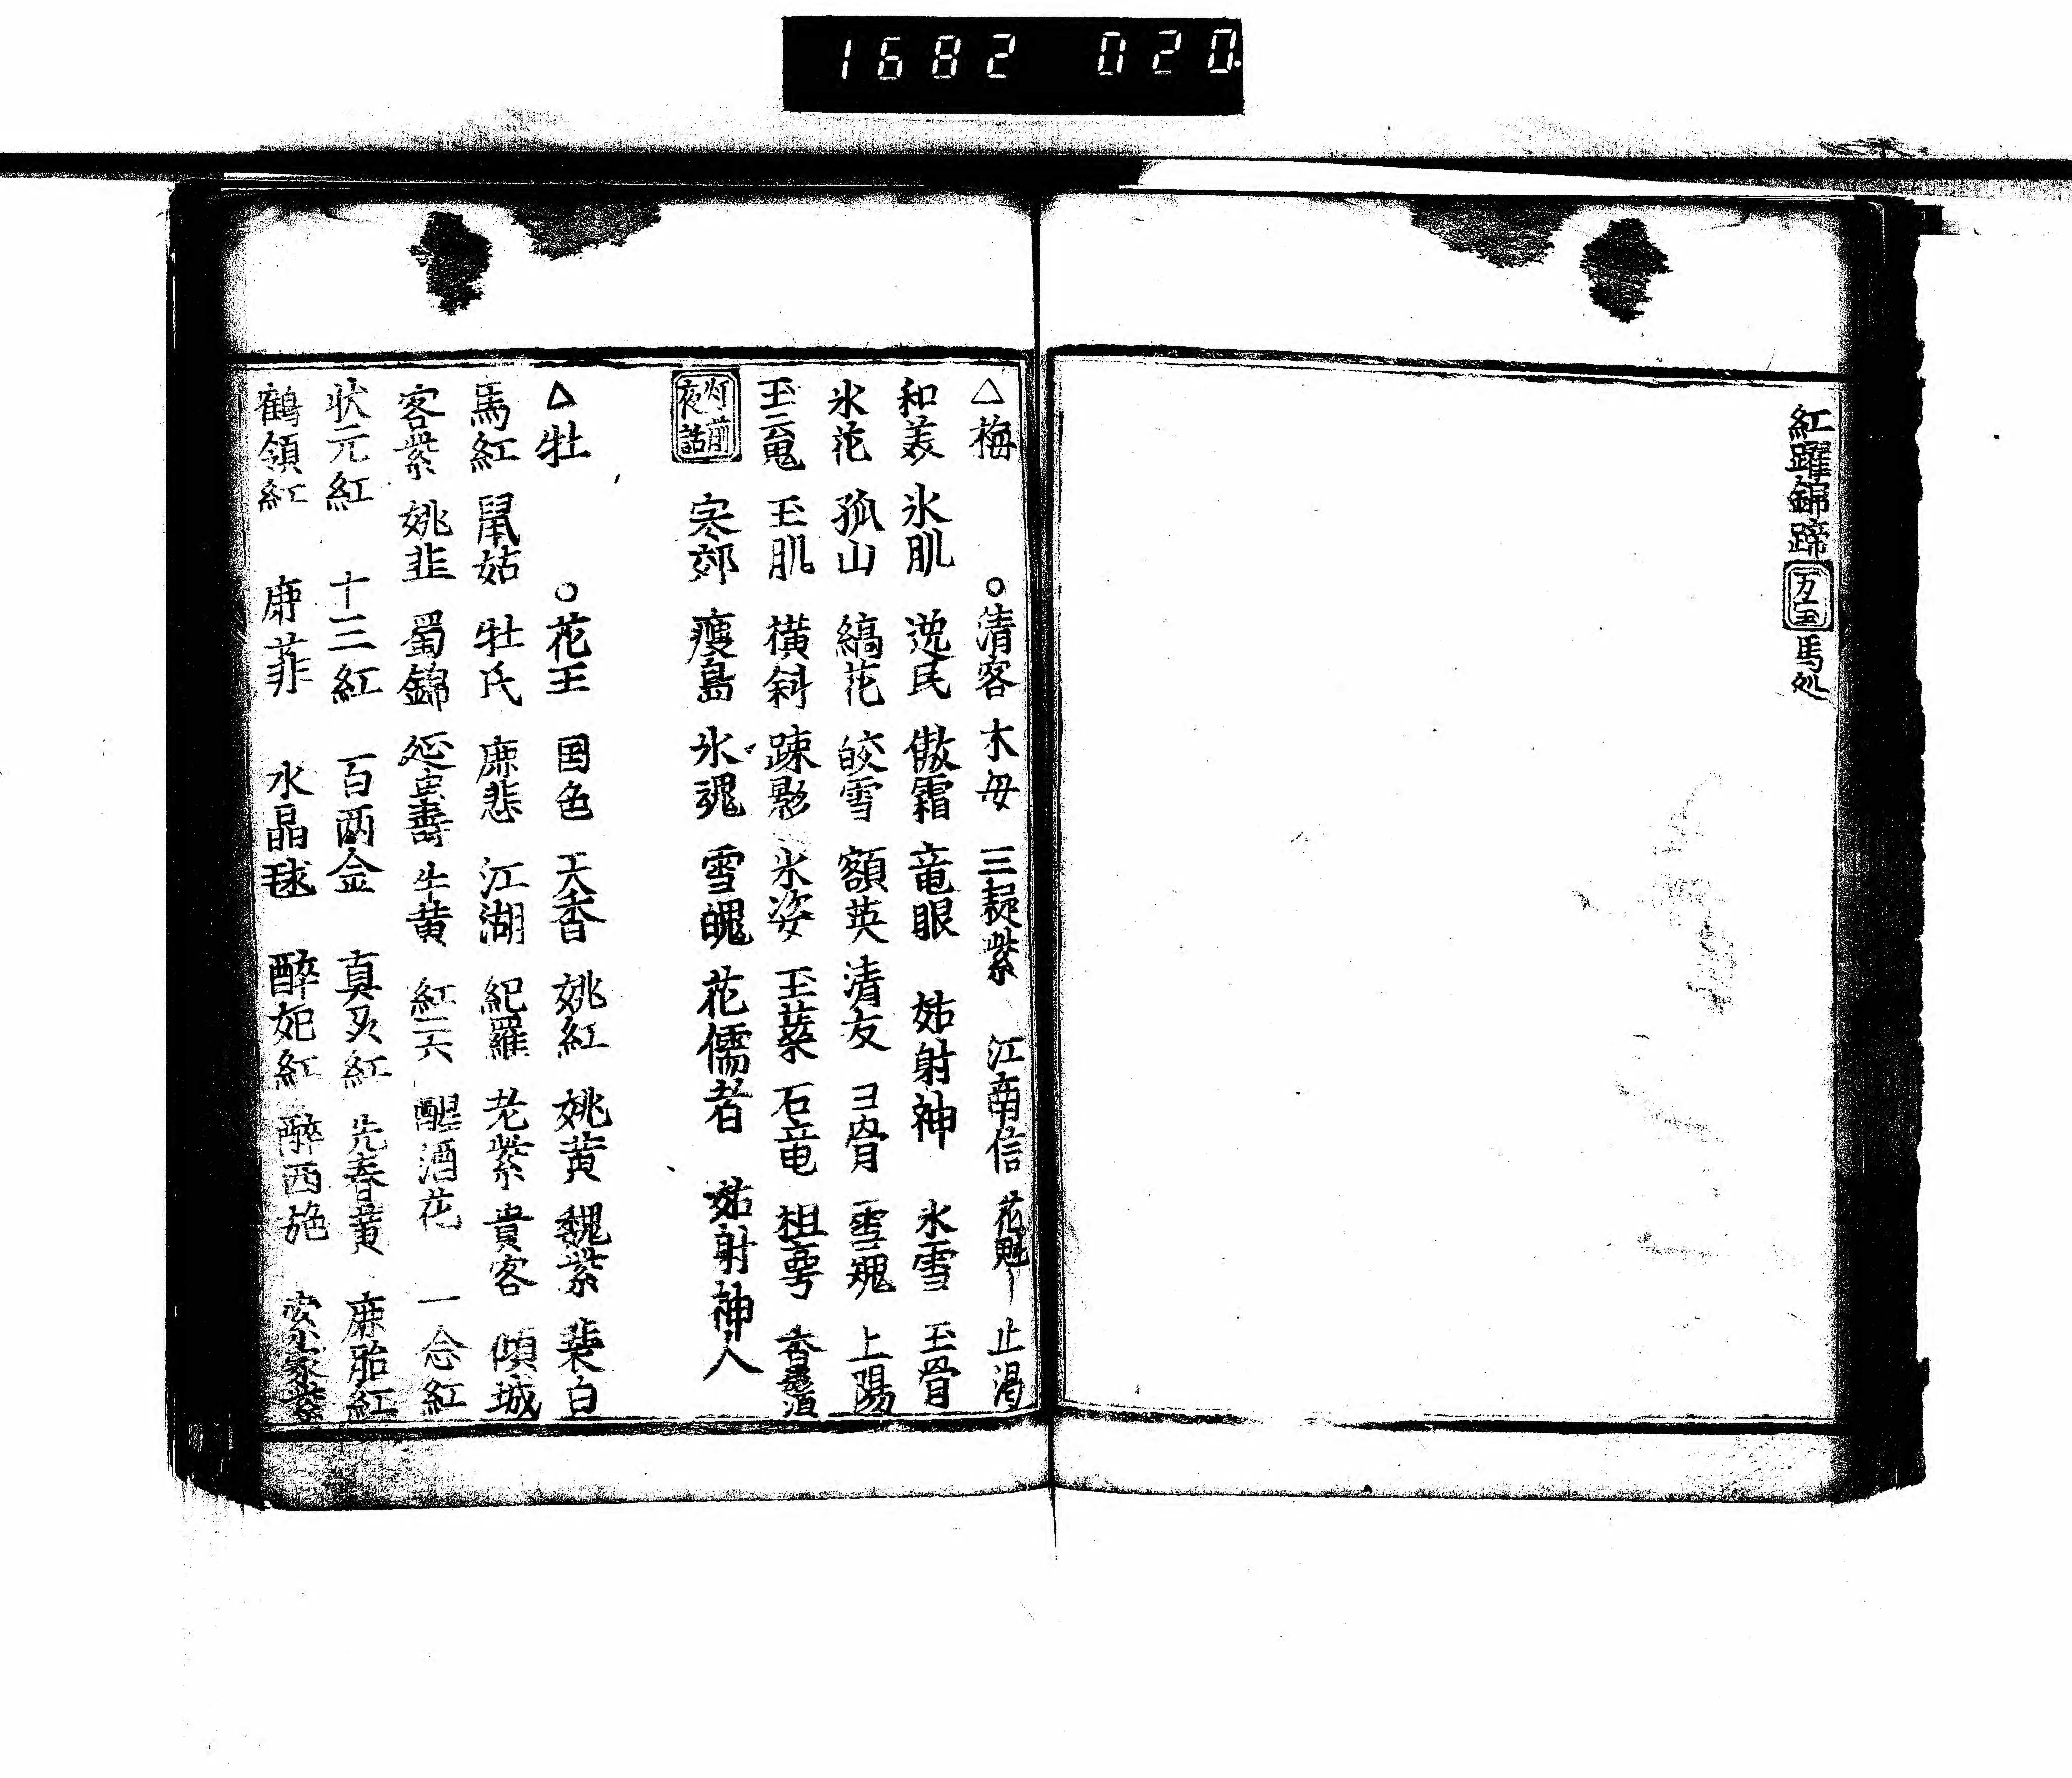 1682 020.
紅躍錦蹄 万宝 馬処
△梅 ○清客 木母 三疑紫 江南信 花魁 止渇
和羹 氷肌 逸民 傲霜 竜眼 姑射神 氷雪 玉骨
氷花 孤山 縞花 皎雪 額英 清友 ヨ骨 雪魂 上陽
玉云鬼 玉肌 横斜 踈影 氷姿 玉蘂 石竜 香
灯前夜話 寒郊 痩島 氷魂 雪魄 花儒者 姑射神人
△牡 ○花王 国色 天香 姚紅 姚黄 魏紫 裴白
馬紅 鼠姑 牡氏 鹿悲 江湖 紀羅 老紫 貴客 傾城
客紫 姚韮 蜀錦 延寿 牛黄 紅云六 醒酒花 一念紅
状元紅 十三紅 百両金 真紅 先春黄 鹿胎紅
鶴領紅 鹿菲 水晶毬 酔妃紅 酔西施 安家紫